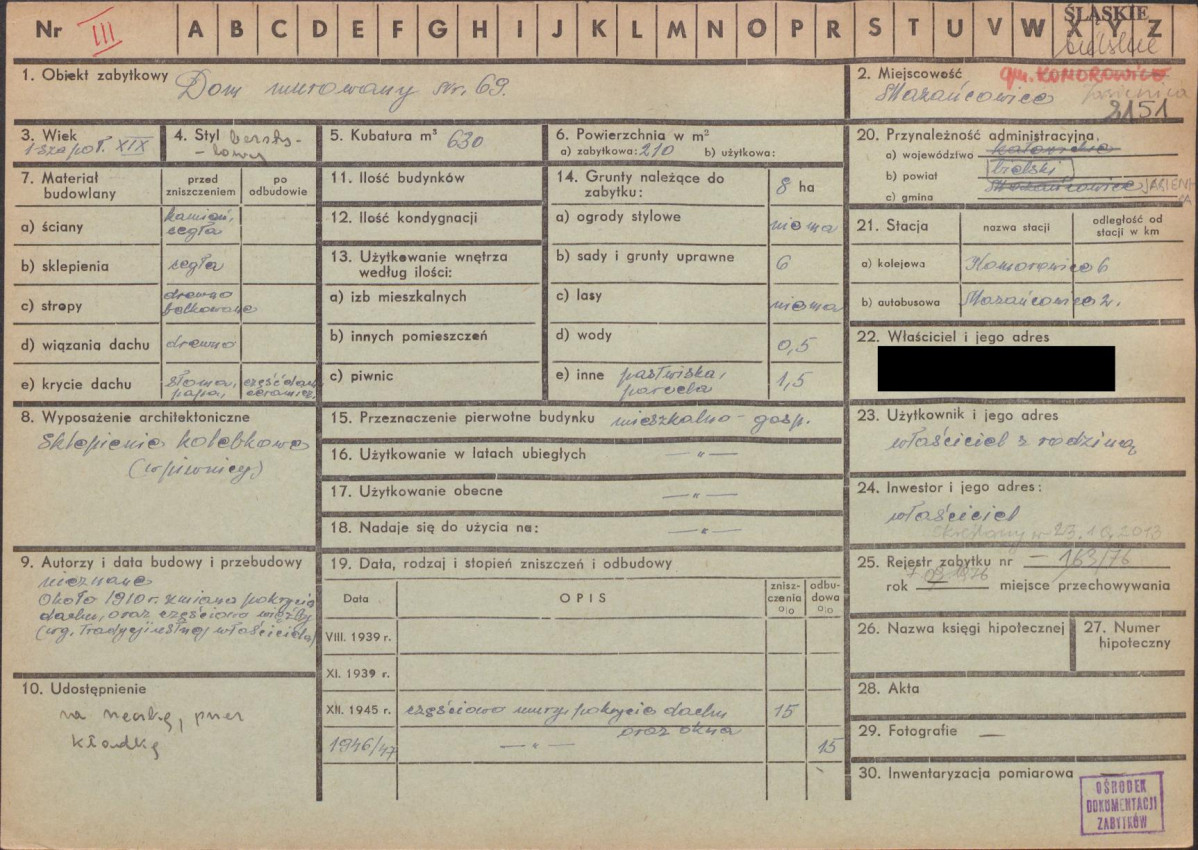 Nr III A B C D E F G H I J K L M N O P R S T U V W X Y Z
ŚLĄSKIE
bielskie
1. Obiekt zabytkowy Dom murowany nr. 69.
2. Miejscowość
gm. KOMOROWICE
Jasienica
Mazańcowice
2151
3. Wiek
1-sza poł. XIX
4. Styl bezsty-
-lowy
5. Kubatura m³ 630
6. Powierzchnia w m²
a) zabytkowa: 210 b) użytkowa:
7. Materiał budowlany
przed zniszczeniem
po odbudowie
a) ściany kamień, cegła
b) sklepienia cegła
c) stropy drewno belkowane
d) wiązania dachu drewno
e) krycie dachu słoma, papa, część dach. ceramicz.
8. Wyposażenie architektoniczne
Sklepienie kolebkowe
(w piwnicy)
9. Autorzy i data budowy i przebudowy
nieznane
Około 1910 r. zmiana pokrycia
dachu, oraz częściowo więźby
(wg. tradycji ustnej właściciela)
10. Udostępnienie
kładkę
11. Ilość budynków
12. Ilość kondygnacji
13. Użytkowanie wnętrza
według ilości:
a) izb mieszkalnych
b) innych pomieszczeń
c) piwnic
14. Grunty należące do
zabytku: 8 ha
a) ogrody stylowe niema
b) sady i grunty uprawne 6
c) lasy niema
d) wody 0,5
e) inne pastwiska, parcela 1,5
15. Przeznaczenie pierwotne budynku mieszkalno - gosp.
16. Użytkowanie w latach ubiegłych — " —
17. Użytkowanie obecne — " —
18. Nadaje się do użycia na: — " —
19. Data, rodzaj i stopień zniszczeń i odbudowy
Data OPIS zniszczenia o/o odbudowa o/o
VIII. 1939 r.
XI. 1939 r.
XII. 1945 r. częściowo mury, pokrycie dachu 15
oraz okna
1946/47 — " — 15
20. Przynależność administracyjna.
a) województwo katowickie
b) powiat bielski
c) gmina Mazańcowice JASIENICA
21. Stacja
nazwa stacji
odległość od stacji w km
a) kolejowa Komorowice 6
b) autobusowa Mazańcowice 2.
22. Właściciel i jego adres
23. Użytkownik i jego adres
właściciel z rodziną
24. Inwestor i jego adres:
właściciel
skreślony 23.10.2013
25. Rejestr zabytku nr — 163/76
rok miejsce przechowywania
26. Nazwa księgi hipotecznej
27. Numer hipoteczny
28. Akta
29. Fotografie —
30. Inwentaryzacja pomiarowa —
OŚRODEK
DOKUMENTACJI
ZABYTKÓW